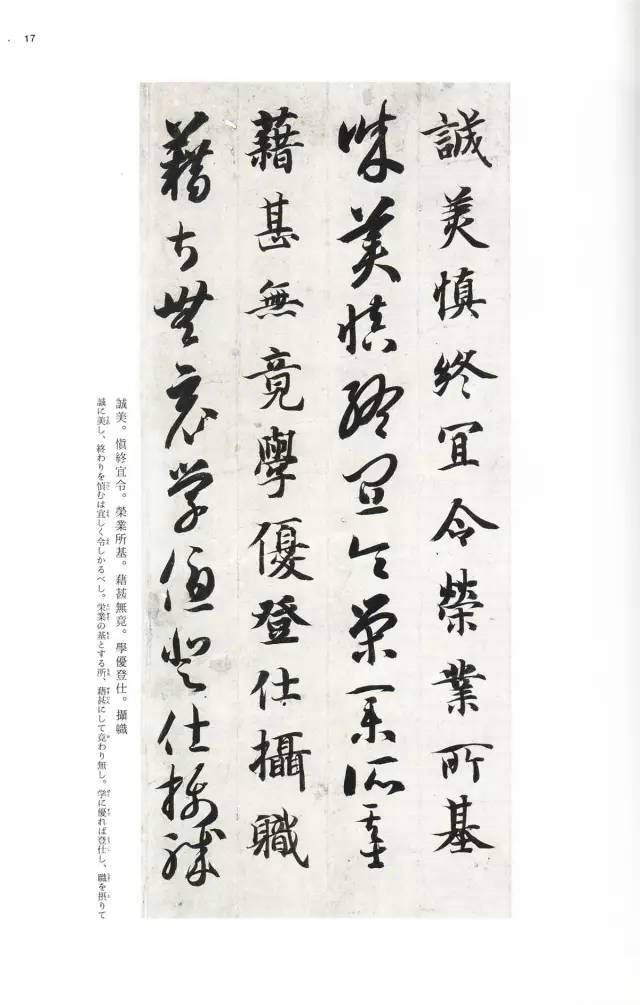 17
誠美慎終宜令榮業所基
誠美慎終宜令榮業所基
藉甚無竟學優登仕攝職
藉甚無竟学優登仕攝職
誠美。愼終宜令。榮業所基。藉甚無竟。學優登仕。攝職
誠に美し、終わりを慎むは宜しく令しかるべし。栄業の基とする所、藉甚にして竟わり無し。学に優れば登仕し、職を摂りて